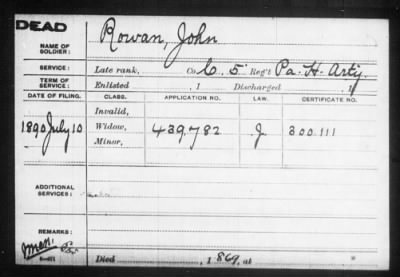 DEAD
NAME OF SOLDIER: Rowan, John
SERVICE: Late rank, Co. C, 5 Reg't Pa. H. Arty.
TERM OF SERVICE: Enlisted , 1 Discharged , 1
DATE OF FILING. CLASS. APPLICATION NO. LAW. CERTIFICATE NO.
Invalid,
1890 July 10 Widow, 439,782 J. 300.111
Minor,
ADDITIONAL SERVICES:
REMARKS:
Died , 1869, at